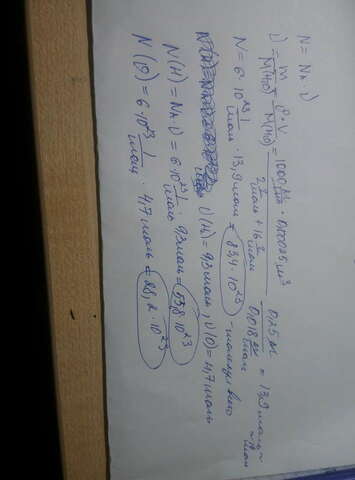 N = Nₐ · ν
ν = m / M(H₂O) = ρ · V / M(H₂O) = 1000 кг/м³ · 0,00025 м³ / 2 г/моль + 16 г/моль = 0,25 кг / 0,018 кг/моль = 13,9 моль
N = 6 · 10²³ 1/моль · 13,9 моль = 83,4 · 10²³ - молекул всего
ν(H) = 9,3 моль, ν(O) = 4,7 моль
N(H) = Nₐ · ν = 6 · 10²³ 1/моль · 9,3 моль = 55,8 · 10²³
N(O) = 6 · 10²³ 1/моль · 4,7 моль = 28,2 · 10²³